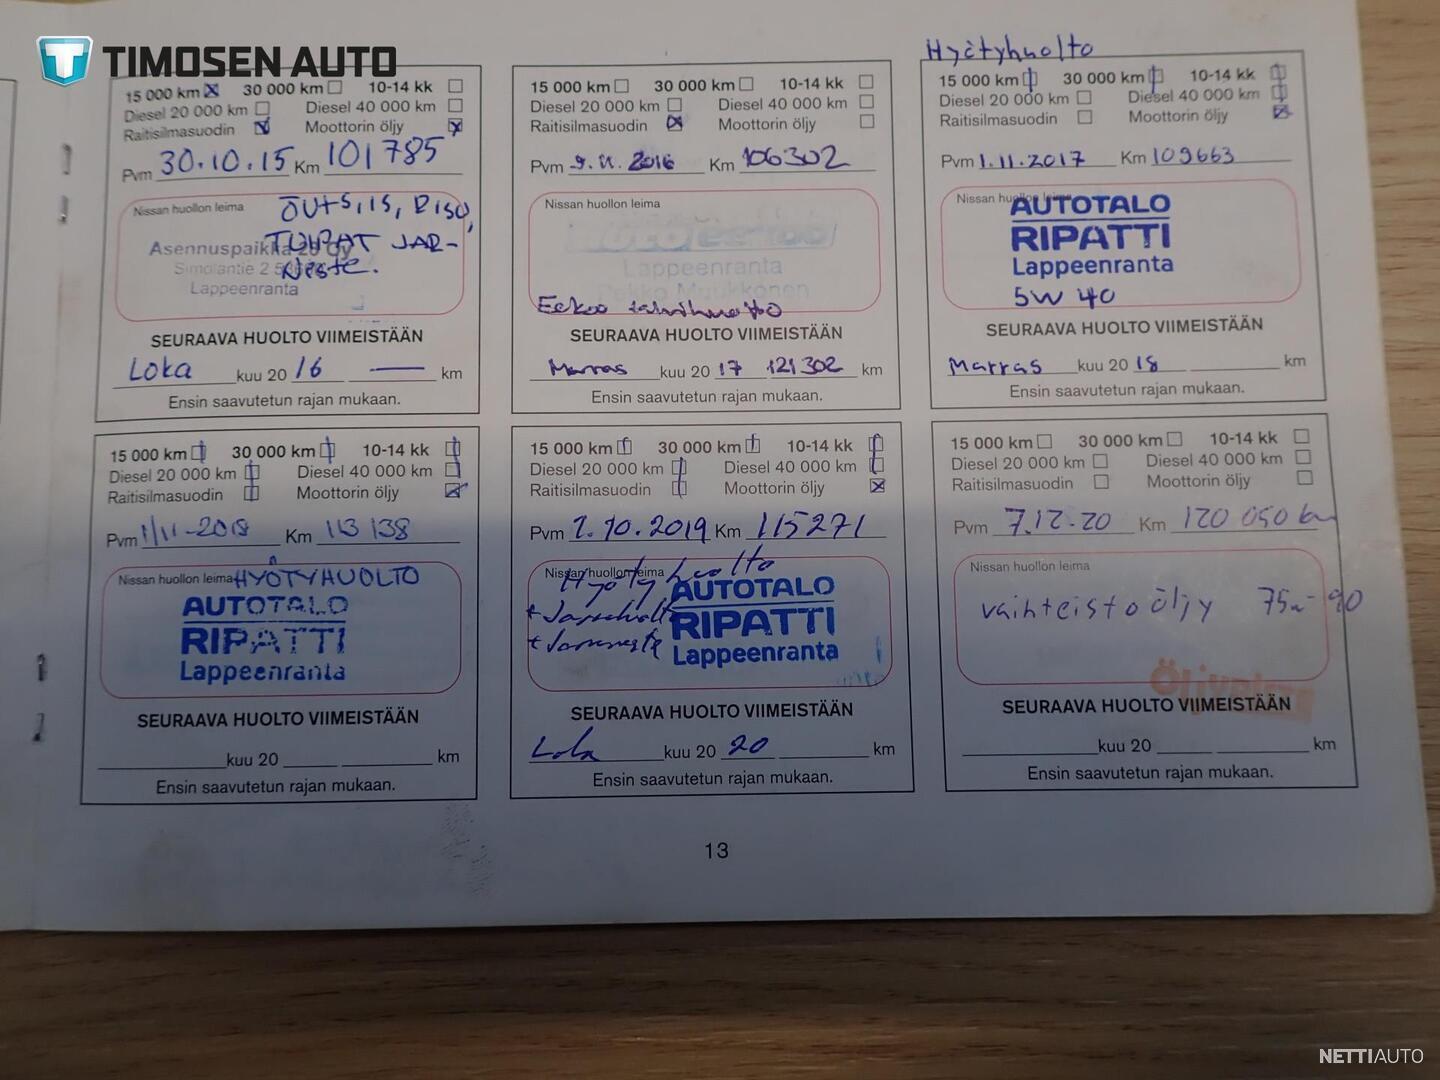 TIMOSEN AUTO
15 000 km 30 000 km 10-14 kk
Diesel 20 000 km Diesel 40 000 km
Raitisilmasuodin Moottorin öljy
Pvm 30.10.15 Km 101785
Nissan huollon leima
Asennuspaikka
Lappeenranta
SEURAAVA HUOLTO VIIMEISTÄÄN
Loka kuu 20 16 — km
Ensin saavutetun rajan mukaan.
15 000 km 30 000 km 10-14 kk
Diesel 20 000 km Diesel 40 000 km
Raitisilmasuodin Moottorin öljy
Pvm 9.11.2016 Km 106302
Nissan huollon leima
Lappeenranta
SEURAAVA HUOLTO VIIMEISTÄÄN
Marras kuu 20 17 121302 km
Ensin saavutetun rajan mukaan.
Hyötyhuolto
15 000 km 30 000 km 10-14 kk
Diesel 20 000 km Diesel 40 000 km
Raitisilmasuodin Moottorin öljy
Pvm 1.11.2017 Km 109663
Nissan huollon leima
AUTOTALO
RIPATTI
Lappeenranta
5W 40
SEURAAVA HUOLTO VIIMEISTÄÄN
Marras kuu 20 18 km
Ensin saavutetun rajan mukaan.
15 000 km 30 000 km 10-14 kk
Diesel 20 000 km Diesel 40 000 km
Raitisilmasuodin Moottorin öljy
Pvm 1/11-2018 Km 113 138
Nissan huollon leima HYÖTYHUOLTO
AUTOTALO
RIPATTI
Lappeenranta
SEURAAVA HUOLTO VIIMEISTÄÄN
kuu 20 km
Ensin saavutetun rajan mukaan.
15 000 km 30 000 km 10-14 kk
Diesel 20 000 km Diesel 40 000 km
Raitisilmasuodin Moottorin öljy
Pvm 1.10.2019 Km 115271
Nissan huollon leima
Hyötyhuolto
AUTOTALO
RIPATTI
Lappeenranta
SEURAAVA HUOLTO VIIMEISTÄÄN
Loka kuu 20 20 km
Ensin saavutetun rajan mukaan.
15 000 km 30 000 km 10-14 kk
Diesel 20 000 km Diesel 40 000 km
Raitisilmasuodin Moottorin öljy
Pvm 7.12.20 Km 120 050 km
Nissan huollon leima
vaihteistoöljy 75w-90
SEURAAVA HUOLTO VIIMEISTÄÄN
kuu 20 km
Ensin saavutetun rajan mukaan.
13
NETTIAUTO